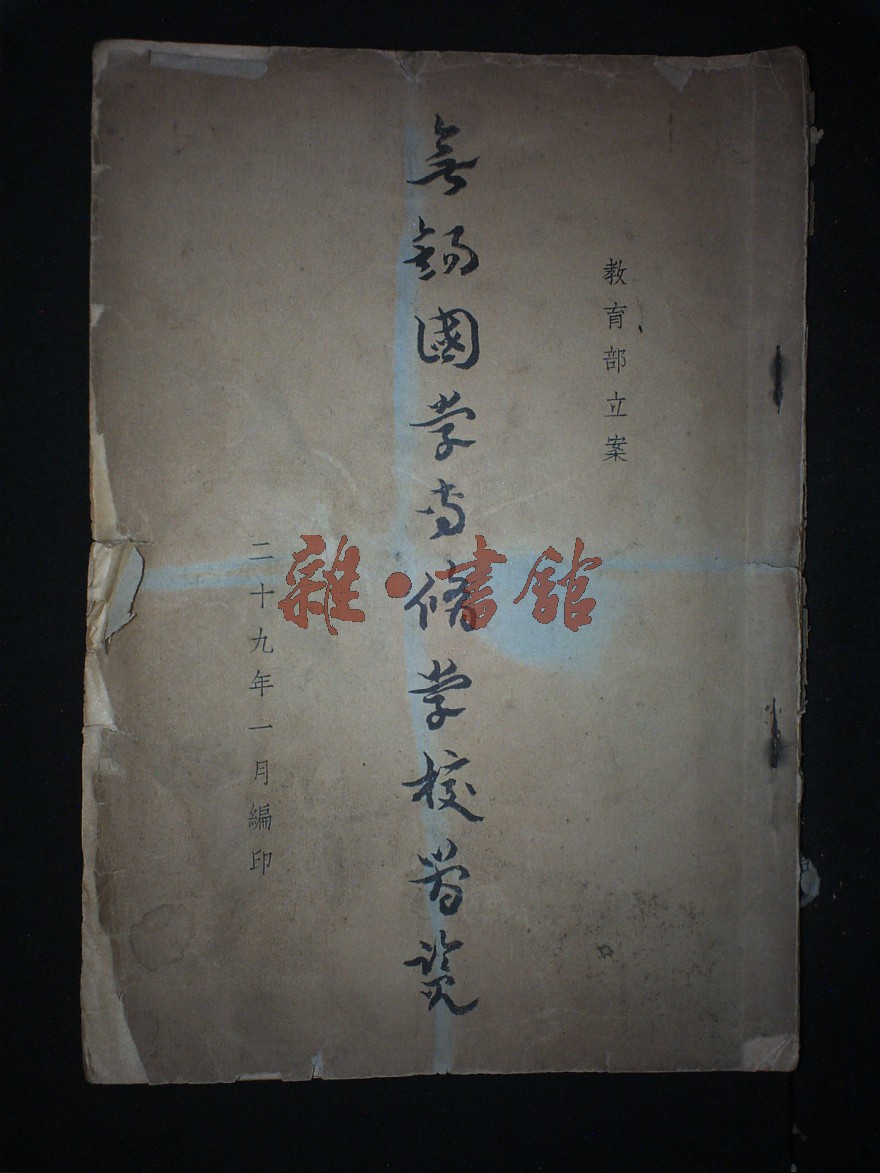 教育部立案
無錫國学專脩学校 覽
二十九年一月編印
雜·書館